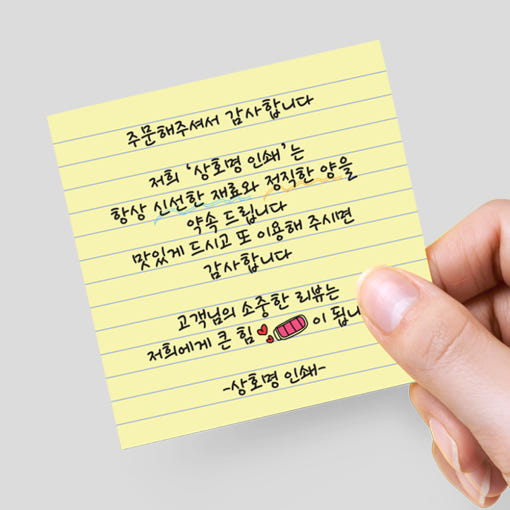 주문해주셔서 감사합니다
저희 '상호명 인쇄'는
항상 신선한 재료와 정직한 양을
약속 드립니다
맛있게 드시고 또 이용해 주시면
감사합니다
고객님의 소중한 리뷰는
저희에게 큰 힘 이 됩니
-상호명 인쇄-